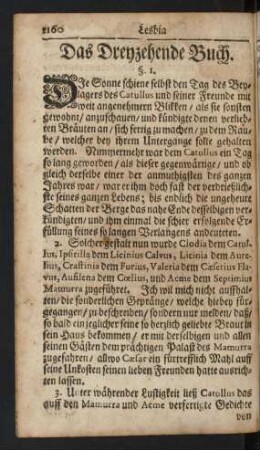 1160 Lesbia
Das Dreyzehende Buch.
§. 1.
DIe Sonne schiene selbst den Tag des Bey-
lagers des Catullus und seiner Freunde mit
weit angenehmern Blikken / als sie sonsten
gewohnt / anzuschauen / und kündigte denen verlieb-
ten Bräuten an / sich fertig zu machen / zu dem Rau-
be / welcher bey ihrem Untergange solte gehalten
werden. Nimmermehr war dem Catullus ein Tag
so lang geworden / als dieser gegenwärtige / und ob
gleich derselbe einer der anmuthigsten des ganzen
Jahres war / war er ihm doch fast der verdrießlich-
ste seines ganzen Lebens; bis endlich die ungeheure
Schatten der Berge das nahe Ende desselbigen ver-
kündigten / und ihm einmal die schier erfolgende Er-
füllung seines so langen Verlangens andeuteten.
2. Solcher gestalt nun wurde Clodia dem Catul-
lus, Ipsitilla dem Licinius Calvus, Licinia dem Aure-
lius, Crastinia dem Furius, Valeria dem Cæserius Fla-
vus, Aufilena dem Cœlius, und Acme dem Septimius
Mamurra zugeführet. Ich wil mich nicht auffhal-
ten / die sonderlichen Gepränge / welche hiebey für-
gegangen / zu beschreiben / sondern nur melden / daß /
so bald ein jeglicher seine so herzlich geliebte Braut in
sein Haus bekommen / er mit derselbigen und allen
seinen Gästen dem prächtigen Palast des Mamurra
zugefahren / allwo Cæsar ein fürtrefflich Mahl auff
seine Unkosten seinen lieben Freunden hatte ausrich-
ten lassen.
3. Unter währender Lustigkeit ließ Catullus das
auff den Mamurra und Acme verfertigte Gedichte
von